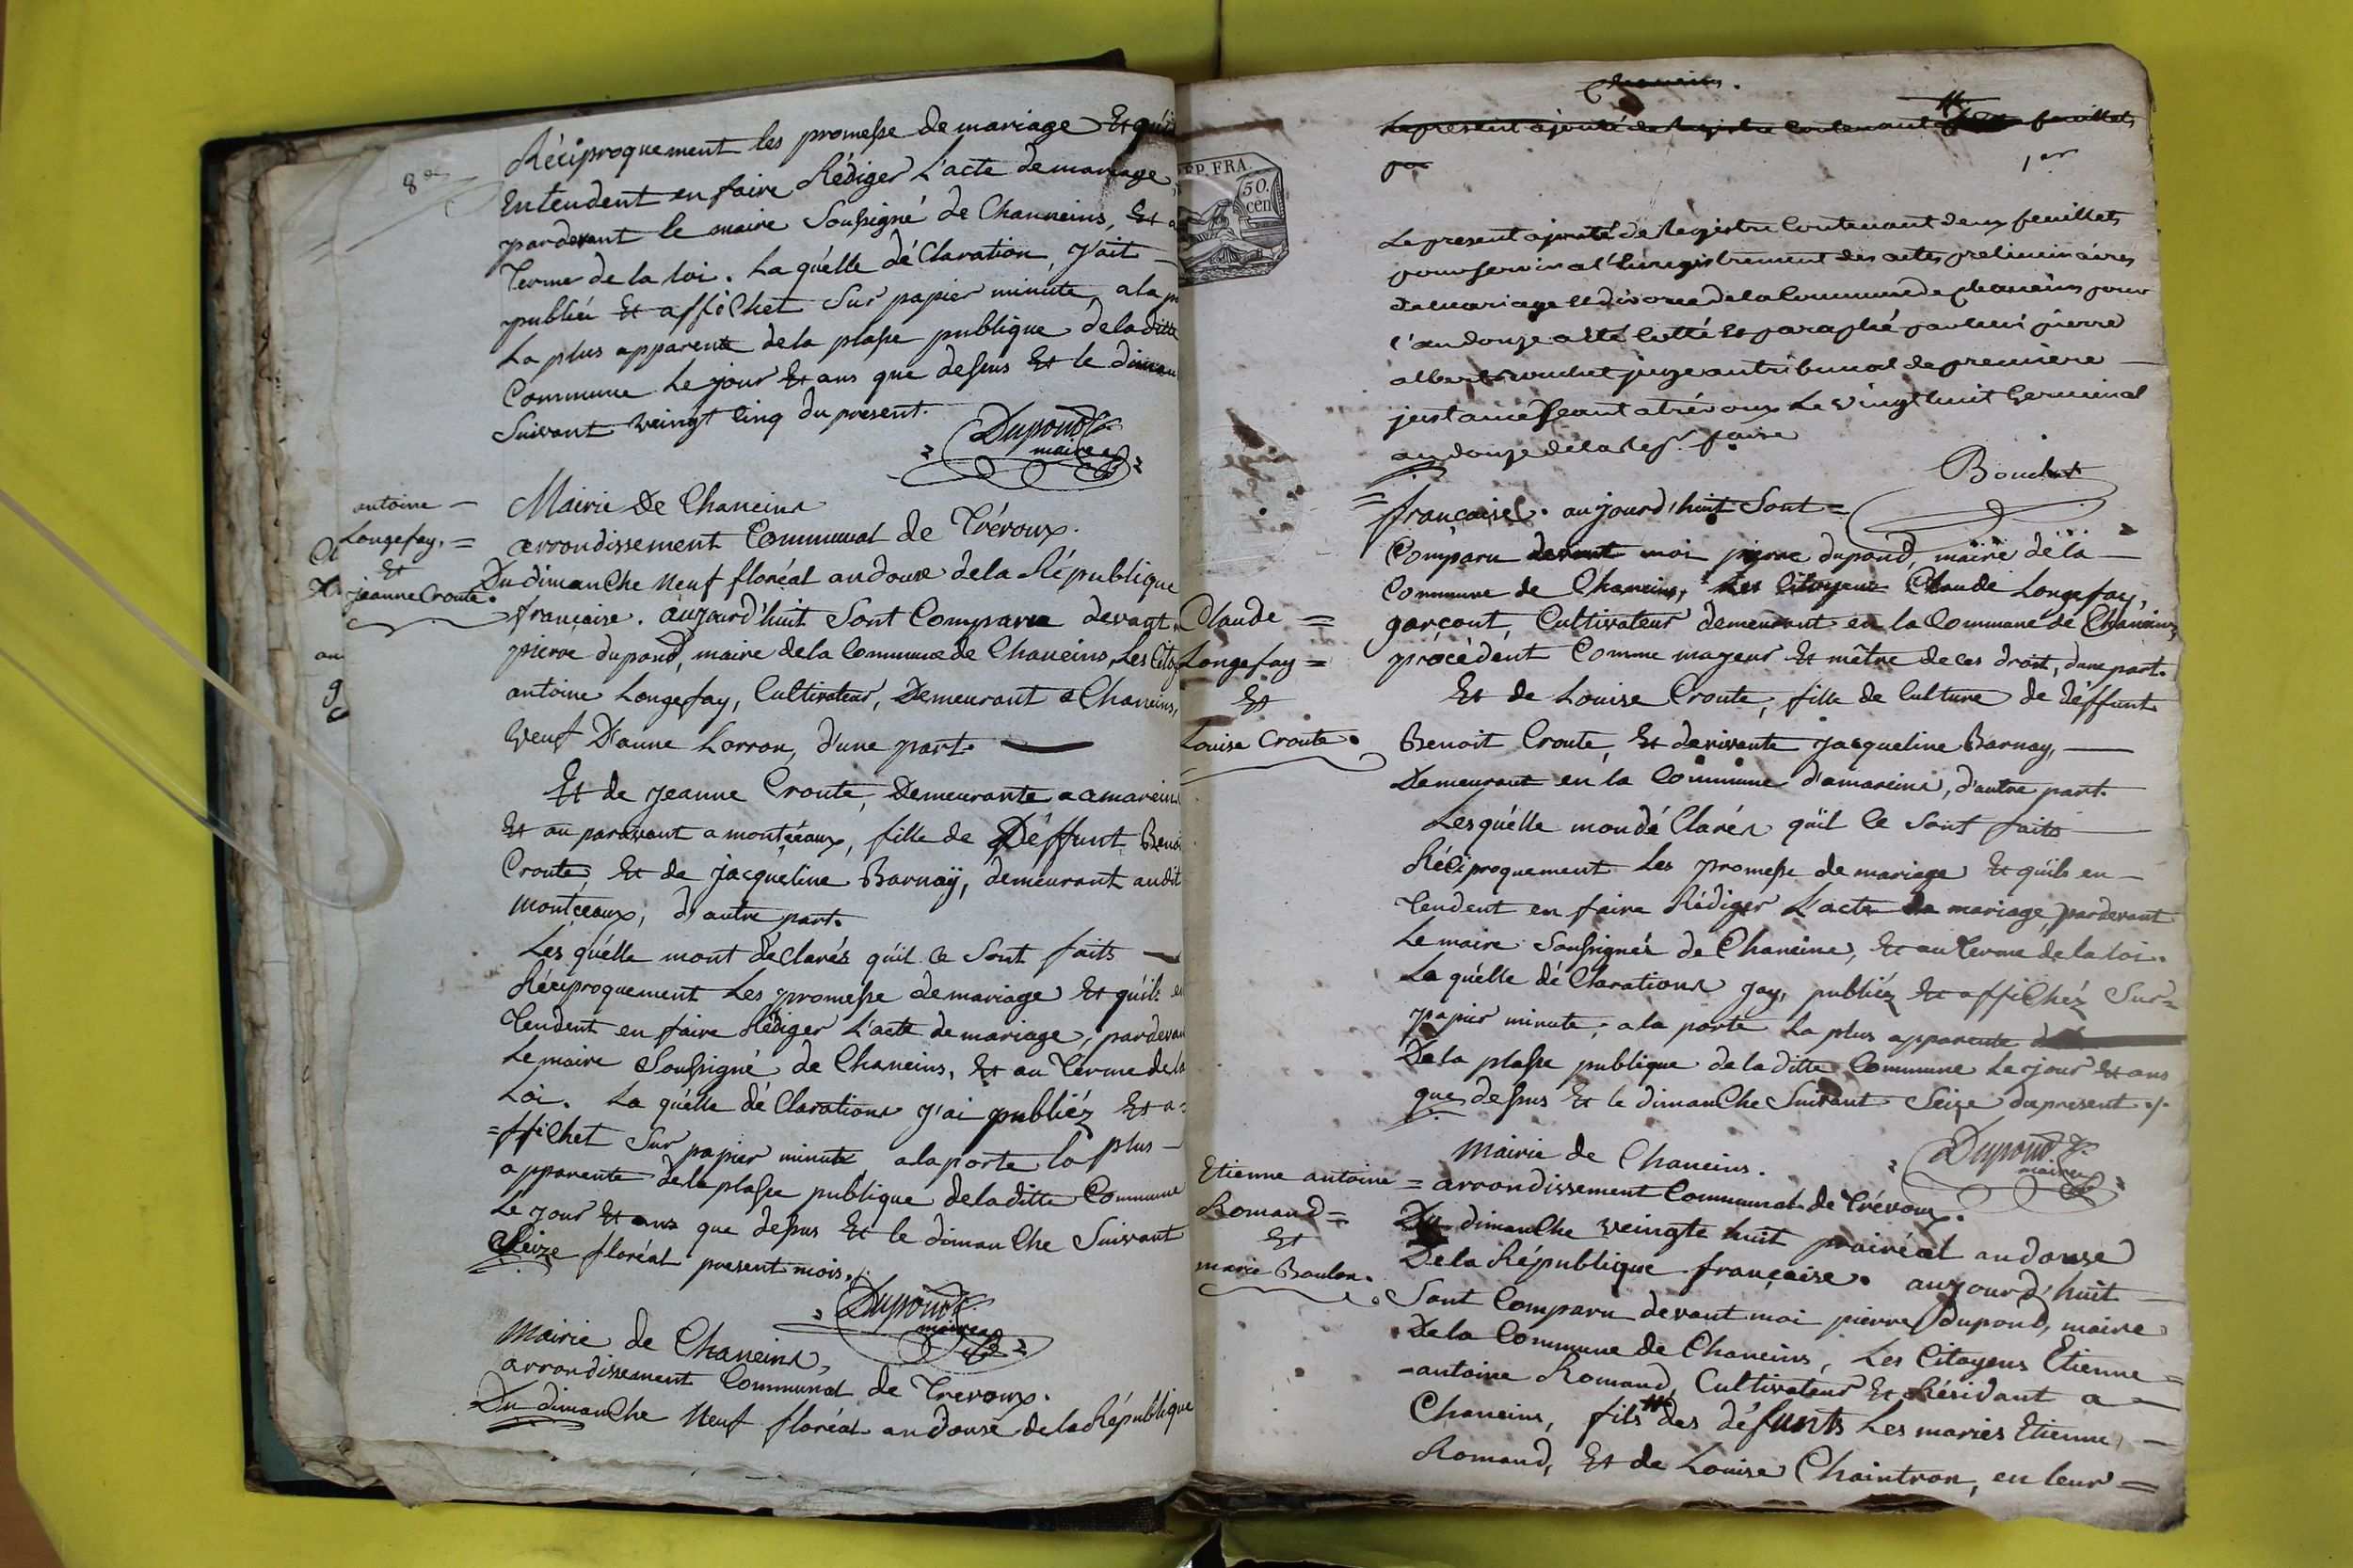 8e
Réciproquement les promesse de mariage Et qu'il
Entendent en faire Rédiger L'acte de mariage
pardevant le maire Soussigné de Chaneins, Et a
Terme de la loi. La quélle dé Claration, j'ait
publiée Et affiChet Sur papier minute, a la p
La plus apparente de la plasse publique de la ditte
Commune Le jour Et ans que dessus Et le diman
Suivant veingt Cinq du present.
Dupond
maire
antoine
Longefay.
Et
jeanne Croute.
Mairie De Chaneins
arrondissement Communal de Trévoux.
Du dimanChe neuf floréal an douse de la République
française. aujourd'huit Sont Comparu devant
pierre dupond, maire de la Commune de Chaneins, Les Citoy
antoine Longefay, Cultivateur, Demeurant a Chaneins,
Veuf D'anne Lorron, d'une part.
Et de jeanne Croute, Demeurante a amareins
Et au paravant a montçeaux, fille de Déffunt Benoi
Croute, Et de jacquéline Barnaÿ, demeurant audit
montçeaux, d'autre part.
Les quélle mont déclarés qu'il Ce Sont faits
Réciproquement Les promesse de mariage Et qu'ils en
Tendent en faire Rédiger L'acte de mariage, pardevan
Le maire Soussigné de Chaneins, Et au Terme de la
Loi. La quélle dé Clarations j'ai publiéz Et a=
=ffiChet Sur papier minute a la porte la plus
apparente de la plasse publique de la ditte Commune
Le jour Et ans que dessus Et le dimanChe Suivant
Seize floréal present mois./.
Dupond
maire
Mairie de Chaneins,
arrondissement Communal de Trevoux.
Du dimanChe Neuf floréal an douse de la République
Chaneins.
Le présent ajouté de Registre Contenant feuillets
1er
REP. FRA.
50.
cen
Le present ajouté de Registre Contenant deux feuillets
pour servir a l'Enregistrement des actes preliminaires
de mariage et divorce de la Commune de chaneins pour
l'an douze a été Cotté et paraphé par nous pierre
albert Bouchet juge au tribunal de premiere
instance séant a trévoux Le vingt huit Germinal
an douze de la Rep. fçaise
Bouchet
=française. aujourd'huit Sont=
Comparu devant moi pierre dupond, maire de la
Commune de Chaneins, Les Citoyens Claude Longefay,
Claude =
Longefay =
Et
Louise Croute.
garçont, Cultivateur demeurant en la Commune de Chaneins,
procédent Comme mageur Et mêtre de ces droit, d'une part.
Et de Louise Croute, fille de Culture de déffunt
Benoit Croute, Et de vivante jacqueline Barnay,
Demeurant en la Commune d'amareins, d'autre part.
Lesquélle mon dé Clarés qu'il Ce Sont faits
Réciproquement Les promesse de mariage Et qu'ils en
Tendent en faire Rédiger L'acte de mariage, pardevant
Le maire Soussignés de Chaneins, Et au Terme de la loi.
La quélle dé Clarations jay, publiéz Et affiChéz Sur=
papier minute, a la porte La plus apparente
De la plasse publique de la ditte Commune Le jour Et ans
que dessus Et le dimanChe Suivant Seize du present./.
Dupond
maire
Etienne antoine
Romand=
Et
marie Boulon.
Mairie de Chaneins.
= arrondissement Communal de Trévoux.
Du dimanChe veingte huit prairéal an douse
De la République française. aujourd'huit
Sont Comparu devant moi pierre dupond, maire
De la Commune de Chaneins, Les Citoyens Etienne=
-antoine Romand, Cultivateur Et Résidant a
Chaneins, fils des défunts Les mariés Etienne
Romand, Et de Louise Chaintron, en leur=